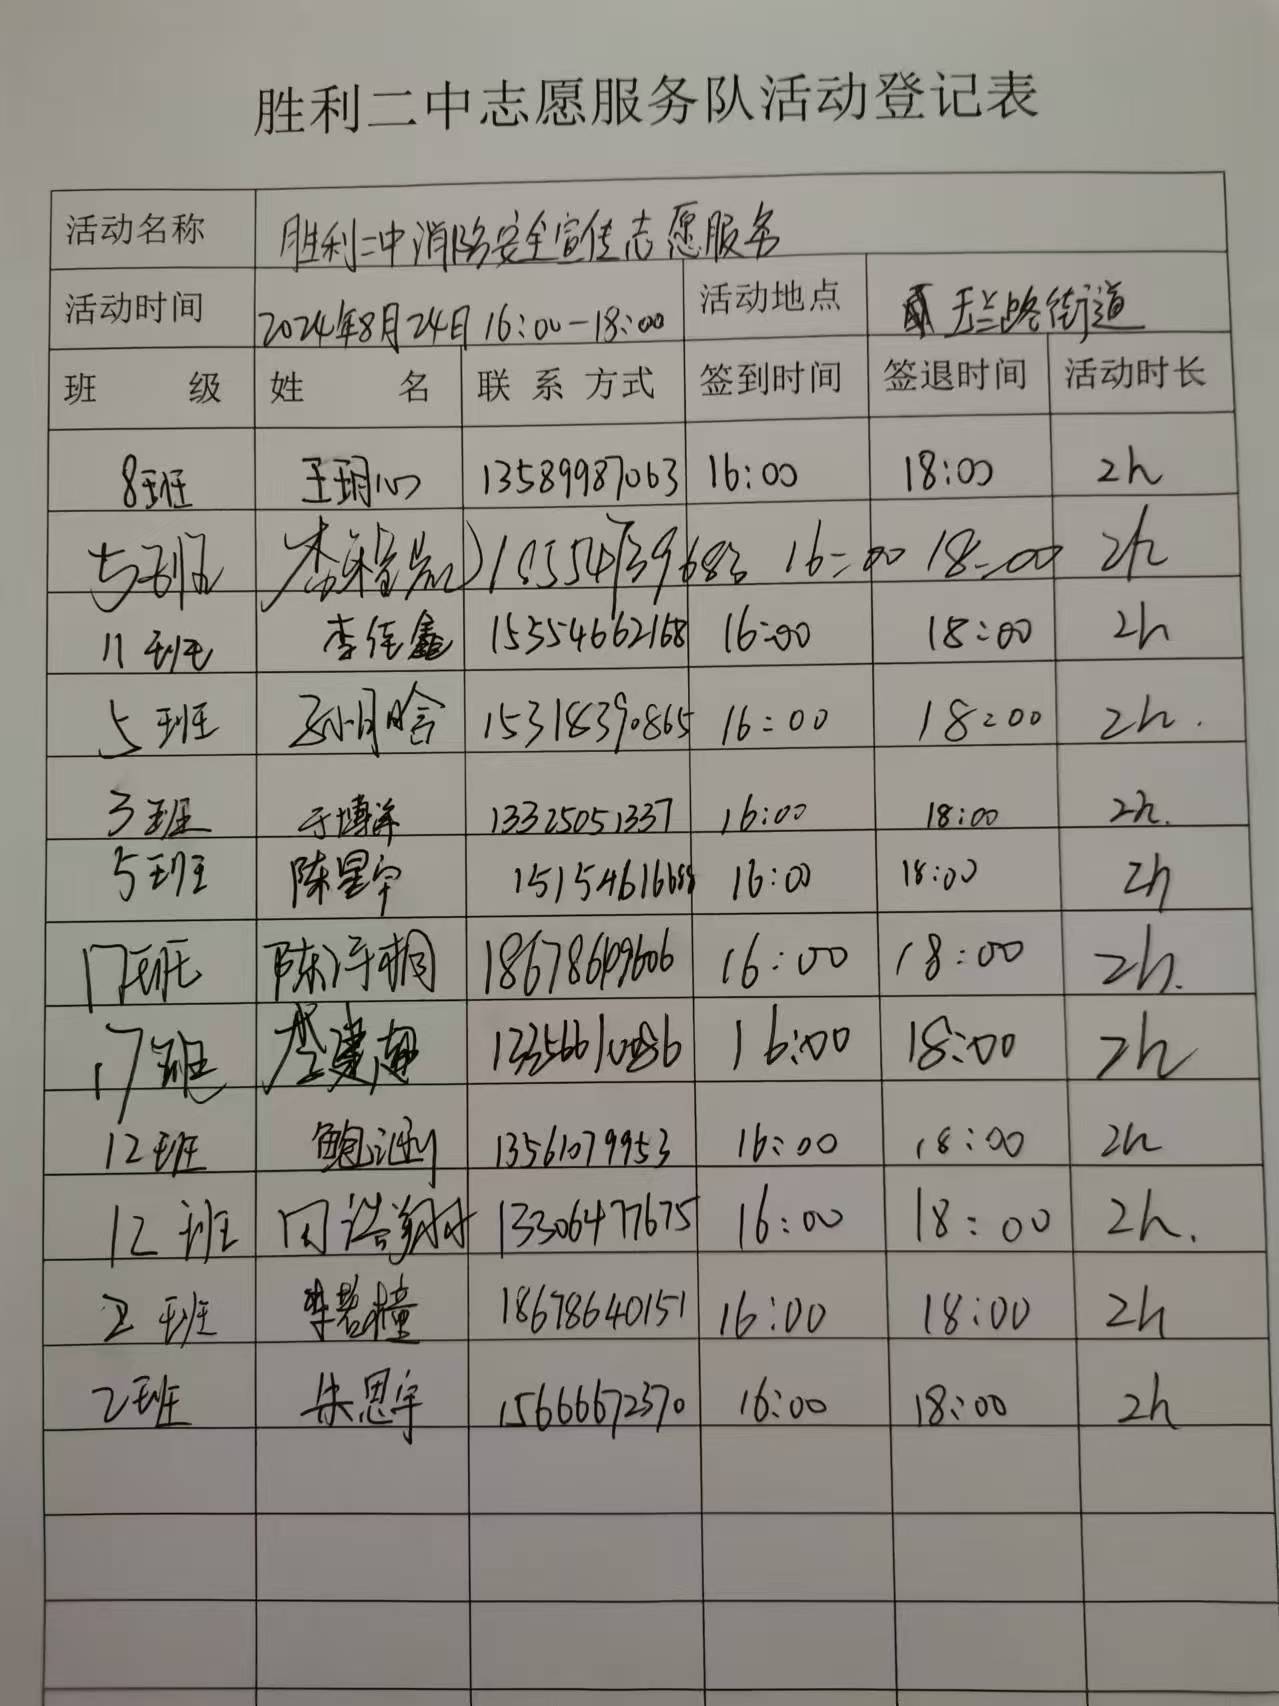 胜利二中志愿服务队活动登记表
活动名称 胜利二中消防安全宣传志愿服务
活动时间 2024年8月24日16:00-18:00 活动地点 玉兰路街道
班 级 姓 名 联系方式 签到时间 签退时间 活动时长
8班 王玥心 13589987063 16:00 18:00 2h
5班 16:00 18:00 2h
11班 李佳鑫 15354662168 16:00 18:00 2h
5班 孙月晗 15318390865 16:00 18:00 2h.
3班 于博洋 13325051337 16:00 18:00 2h.
5班 陈星宇 16:00 18:00 2h
17班 陈浮桐 18678609606 16:00 18:00 2h.
17班 李 16:00 18:00 2h
12班 鲍 13561079953 16:00 18:00 2h
12班 13306477675 16:00 18:00 2h.
2班 李若橦 18678640151 16:00 18:00 2h
2班 朱恩宇 15666672370 16:00 18:00 2h